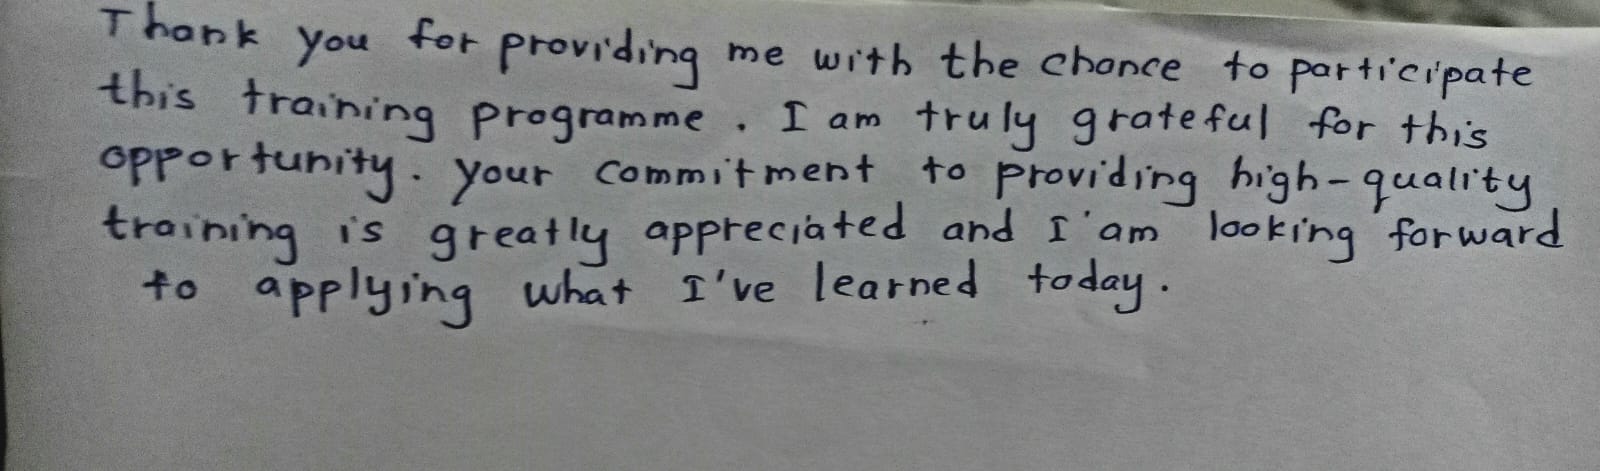 Thank you for providing me with the chance to participate
this training programme. I am truly grateful for this
opportunity. your commitment to providing high-quality
training is greatly appreciated and I'am looking forward
to applying what I've learned today.